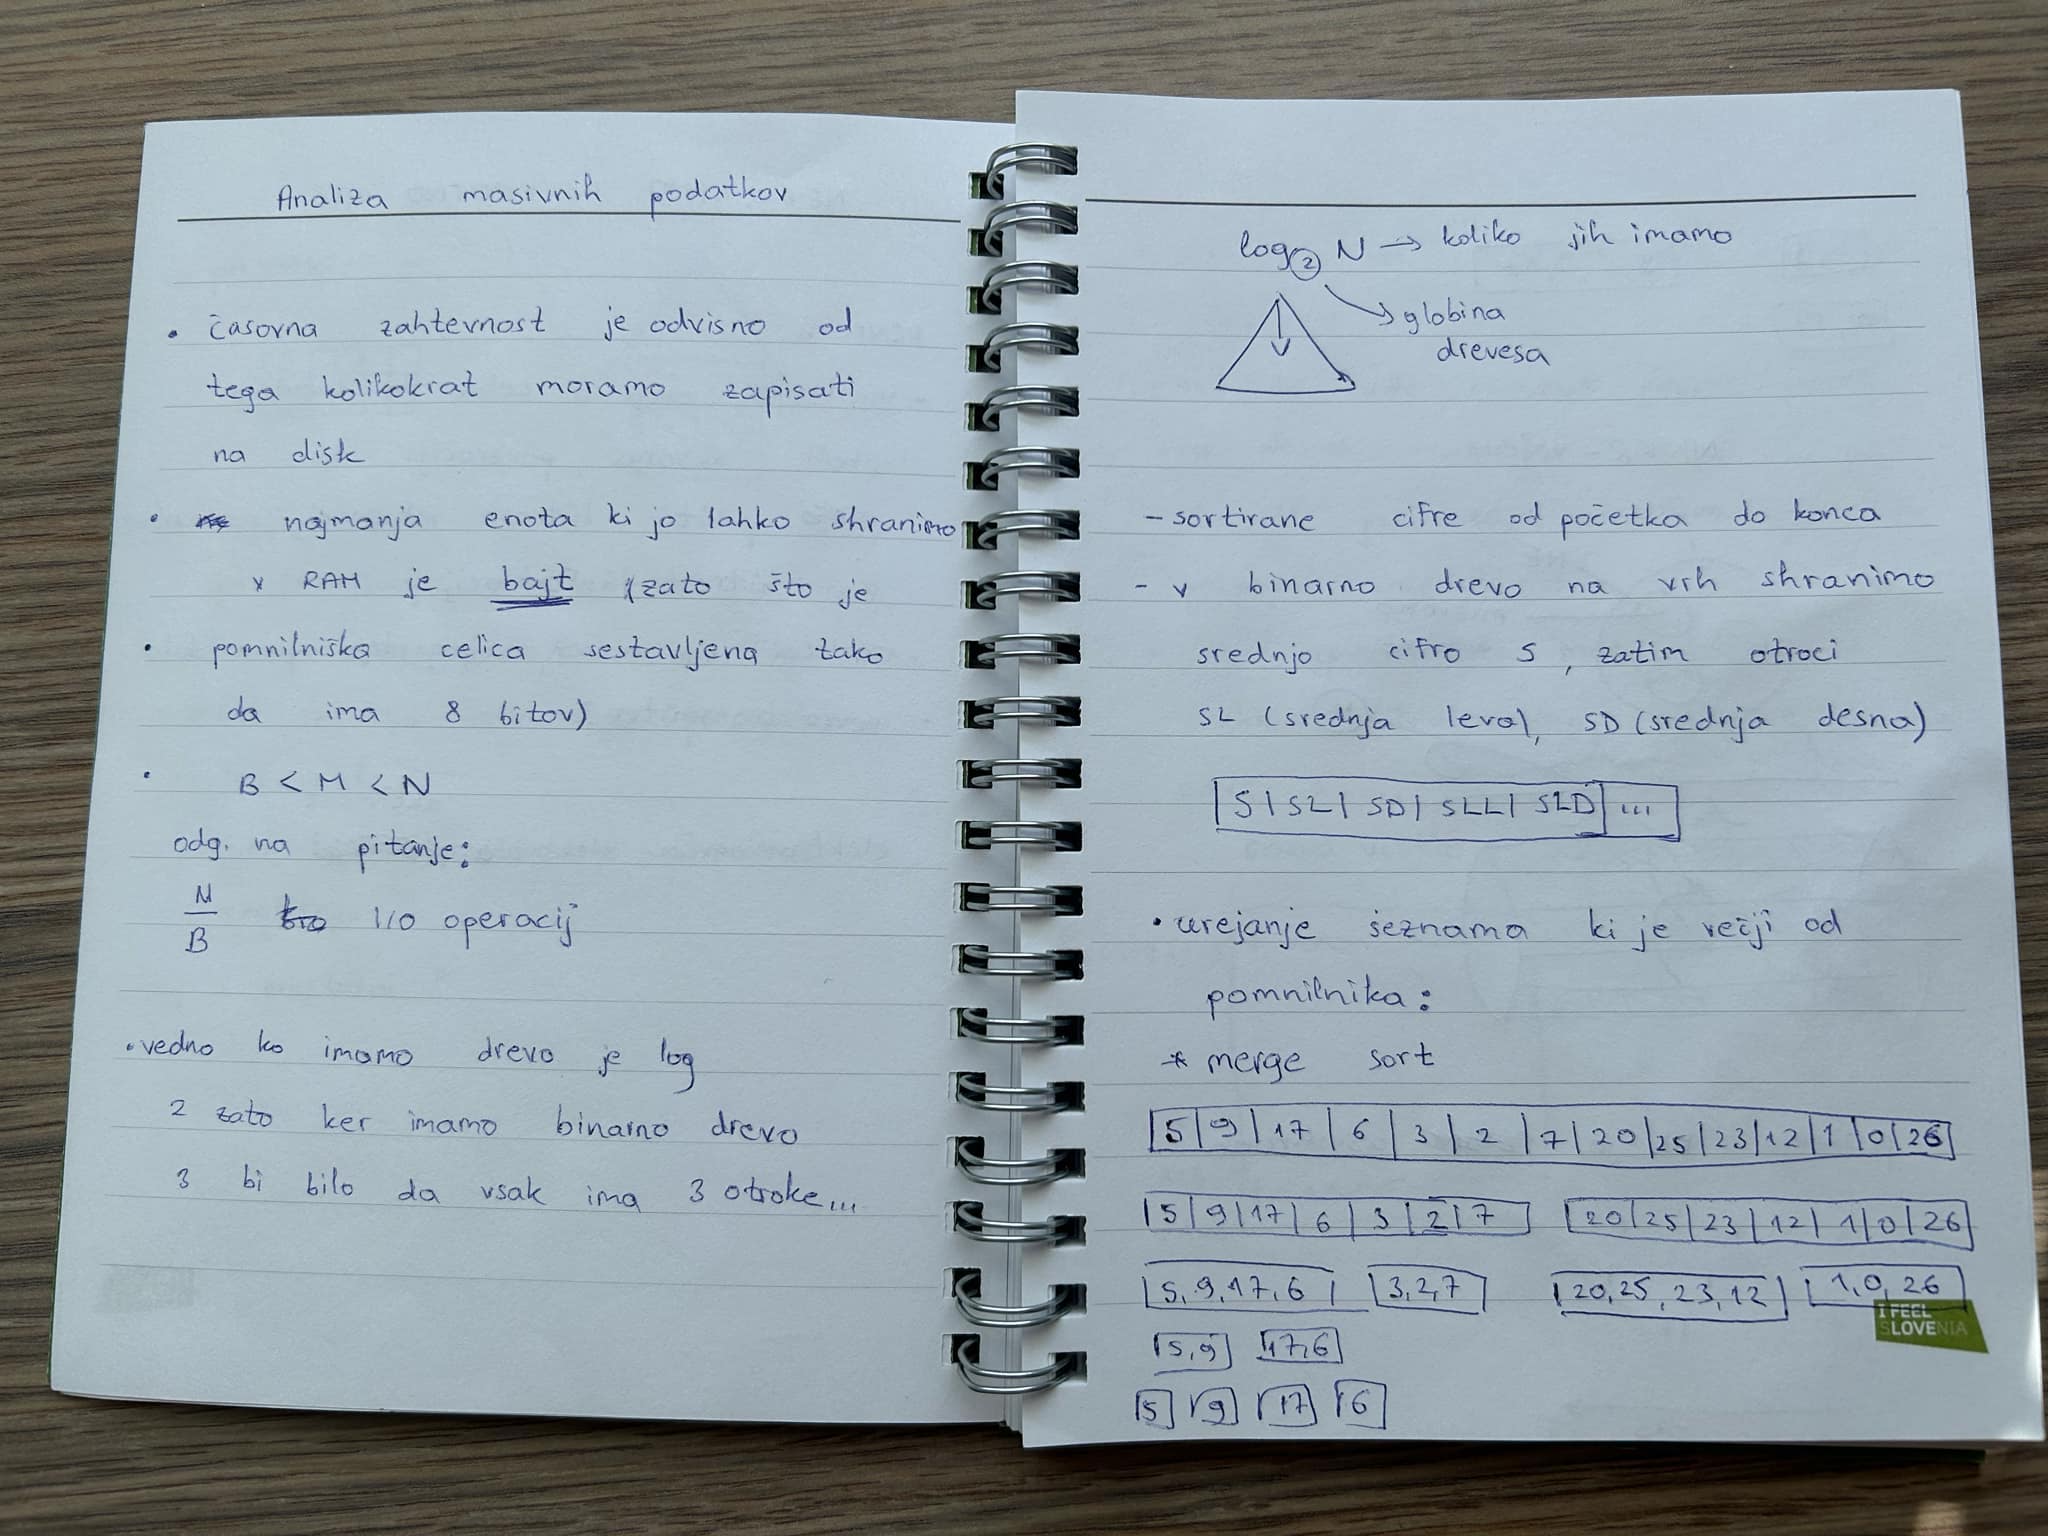 Analiza masivnih podatkov
• časovna zahtevnost je odvisno od
tega kolikokrat moramo zapisati
na disk
• najmanja enota ki jo lahko shranimo
v RAM je bajt (zato što je
• pomnilniška celica sestavljena tako
da ima 8 bitov)
• B < M < N
odg. na pitanje:
N
B
I/O operacij
• vedno ko imamo drevo je log
2 zato ker imamo binarno drevo
3 bi bilo da vsak ima 3 otroke...
log₂ N → koliko jih imamo
globina
drevesa
- sortirane cifre od početka do konca
- v binarno drevo na vrh shranimo
srednjo cifro S, zatim otroci
SL (srednja leva), SD (srednja desna)
S | SL | SD | SLL | SLD | ...
• urejanje seznama ki je večji od
pomnilnika:
* merge sort
5 | 9 | 17 | 6 | 3 | 2 | 7 | 20 | 25 | 23 | 12 | 1 | 0 | 26
5 | 9 | 17 | 6 | 3 | 2 | 7 20 | 25 | 23 | 12 | 1 | 0 | 26
5, 9, 17, 6 3, 2, 7 20, 25, 23, 12 1, 0, 26
5, 9 17, 6
5 9 17 6
I FEEL
SLOVENIA